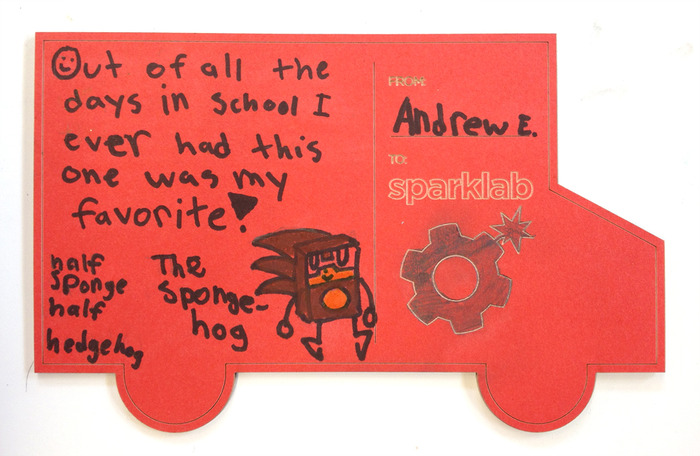 Out of all the
days in school I
ever had this
one was my
favorite!
half
sponge
half
hedgehog
The
sponge-
hog
FROM:
Andrew E.
TO:
sparklab